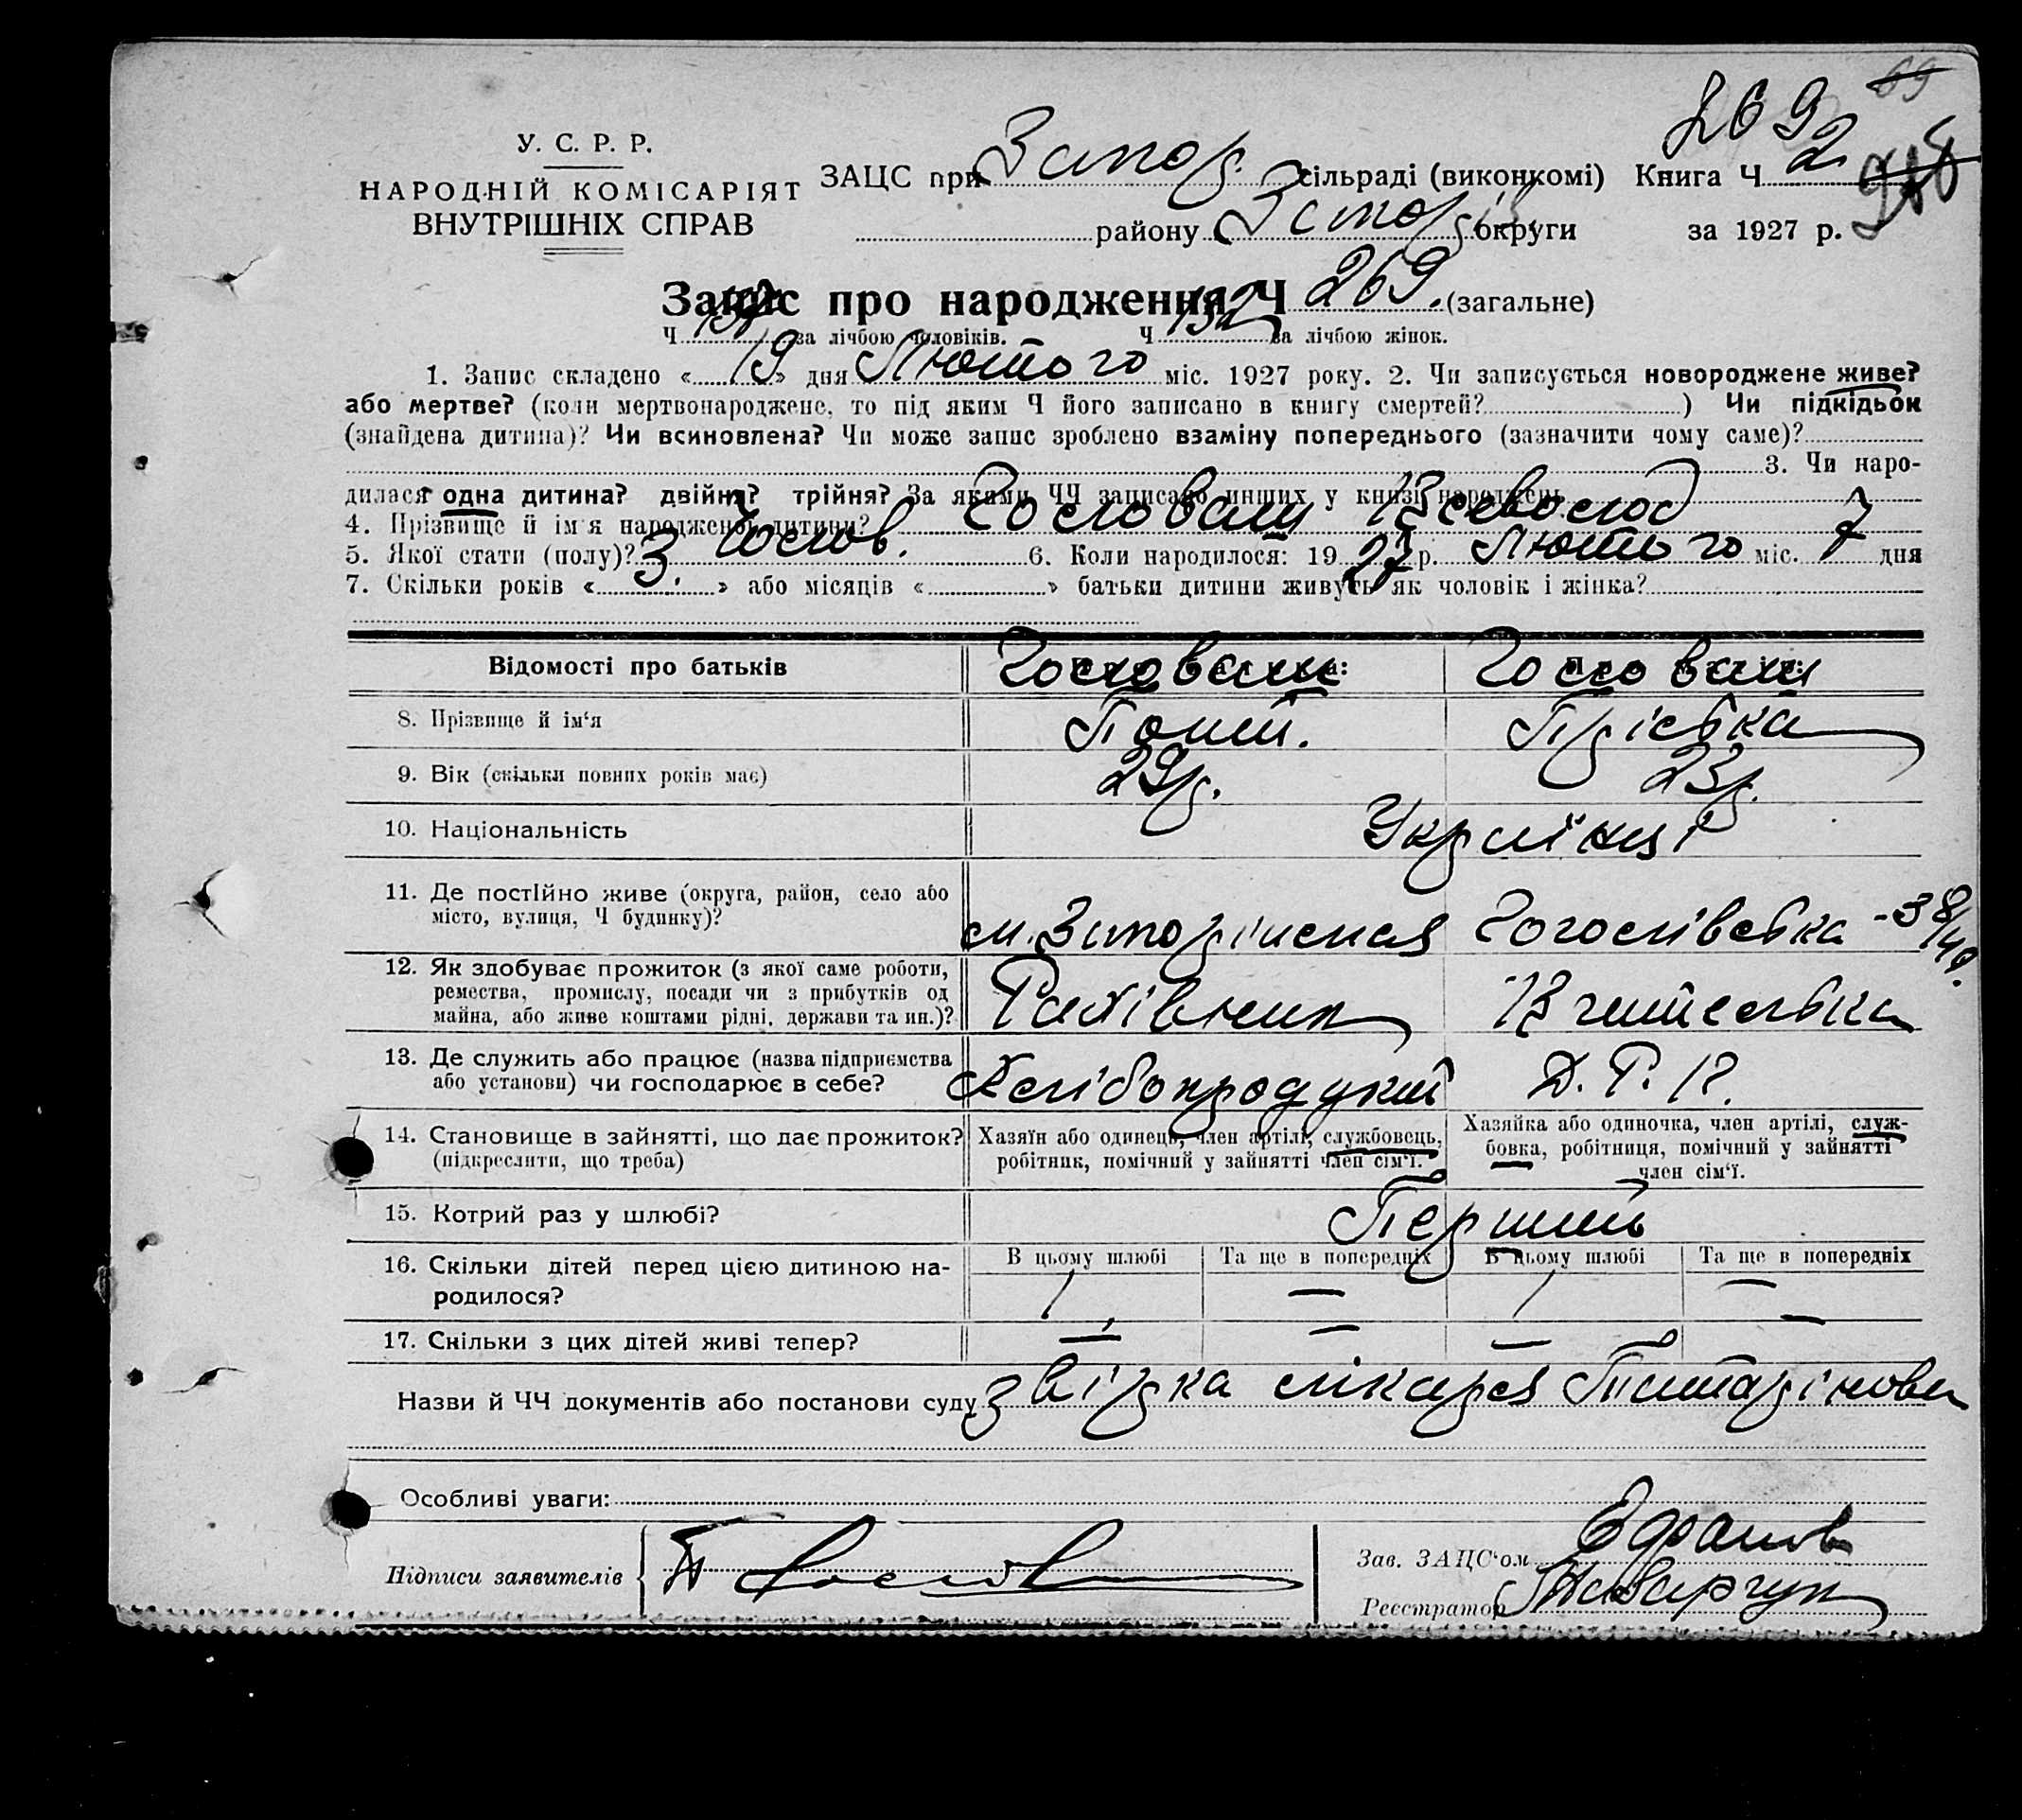 269
69
У. С. Р. Р.
НАРОДНІЙ КОМІСАРІЯТ
ВНУТРІШНІХ СПРАВ
ЗАЦС при Запор. сільраді (виконкомі) Книга Ч 2
району Запоріз округи за 1927 р.
Запис про народження Ч 269. (загальне)
Ч за лічбою чоловіків. Ч 132 за лічбою жінок.
1. Запис складено « 19 » дня Лютого міс. 1927 року. 2. Чи записується новороджене живе?
або мертве? (коли мертвонароджене, то під яким Ч його записано в книгу смертей? ) Чи підкідьок
(знайдена дитина)? Чи всиновлена? Чи може запис зроблено взаміну попереднього (зазначити чому саме)?
3. Чи наро-
дилася одна дитина? двійня? трійня? За якими ЧЧ записано инших у книзі народжень
4. Прізвище й ім'я народженої дитини? Всеволод
5. Якої стати (полу)? Чолов. 6. Коли народилося: 19 27 р. Лютого міс. 7 дня
7. Скільки років « 3. » або місяців « » батьки дитини живуть як чоловік і жінка?
Відомості про батьків
8. Прізвище й ім‘я
9. Вік (скільки повних років має) 29р. 23р.
10. Національність Українці
11. Де постІйно живе (округа, район, село або
місто, вулиця, Ч будинку)? м. Запоріжжя Гоголівська - 38/40.
12. Як здобуває прожиток (з якої саме роботи,
ремества, промислу, посади чи з прибутків од
майна, або живе коштами рідні, держави та ин.)? Рахівник Вчителька
13. Де служить або працює (назва підприємства
або установи) чи господарює в себе? Хлібопродукт
14. Становище в зайнятті, що дає прожиток?
(підкреслити, що треба)
Хазяїн або одинець, член артілі, службовець,
робітник, помічний у зайнятті член сім‘ї.
Хазяйка або одиночка, член артілі, служ-
бовка, робітниця, помічний у зайнятті
член сім‘ї.
15. Котрий раз у шлюбі? Перший
16. Скільки дітей перед цією дитиною на-
родилося?
В цьому шлюбі Та ще в попередніх В цьому шлюбі Та ще в попередніх
1 — 1 —
17. Скільки з цих дітей живі тепер? — — — —
Назви й ЧЧ документів або постанови суду звірка лікаря
Особливі уваги:
Підписи заявителів
Зав. ЗАЦС‘ом
Реєстратор